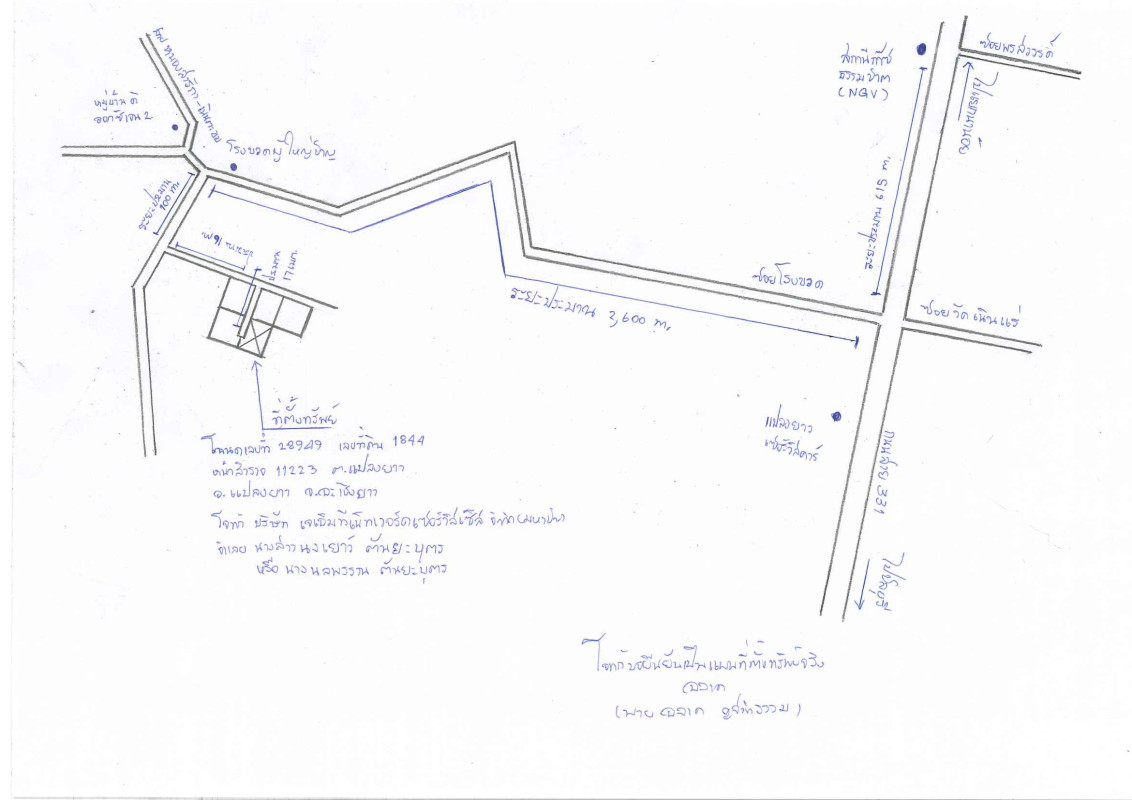 หมู่บ้าน ดิ
ออกซิเจน 2
โรงขวดผู้ใหญ่ชาญ
ระยะประมาณ
900 m.
ประมาณ
17 เมตร
ระยะประมาณ 2,600 m.
ซอยโรงขวด
สถานีก๊าซ
ธรรมชาติ
(NGV)
ระยะประมาณ 619 m.
ซอยพรสวรรค์
ซอยวัดเนินแร่
แปลงยาว
เซอร์วิสคาร์
ถนนสาย 331
ไปชลบุรี
ที่ตั้งทรัพย์
โฉนดเลขที่ 28949 เลขที่ดิน 1844
หน้าสำรวจ 11223 ต.แปลงยาว
อ.แปลงยาว จ.ฉะเชิงเทรา
โจทก์ บริษัท เจเอ็มที เน็ทเวอร์ค เซอร์วิสเซ็ส จำกัด (มหาชน)
จำเลย นางสาว นงเยาว์ ตันยะบุตร
หรือ นางนลพรรณ ตันยะบุตร
โจทก์ขอยืนยันเป็นแผนที่ตั้งทรัพย์จริง
ฉลาด